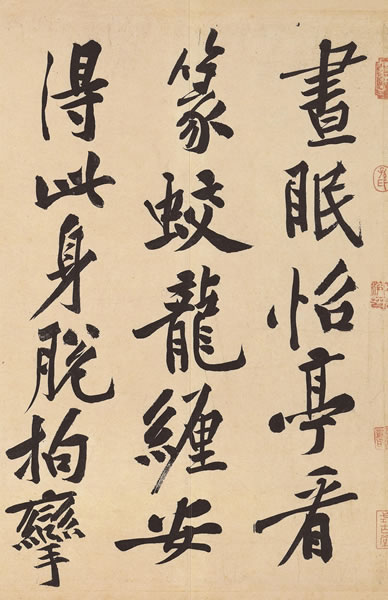 晝眠怡亭看
篆蛟龍纏安
得此身脫拘攣